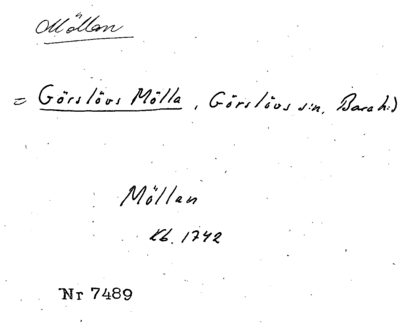 Möllan
= Görslövs Mölla, Görslövs s:n, Bara h:d
Möllan
Kb. 1742
Nr 7489